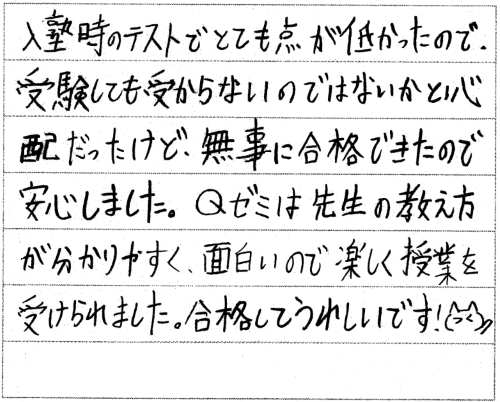 入塾時のテストでとても点が低かったので、
受験しても受からないのではないかと心
配だったけど、無事に合格できたので
安心しました。Qゼミは先生の教え方
が分かりやすく、面白いので楽しく授業を
受けられました。合格してうれしいです!